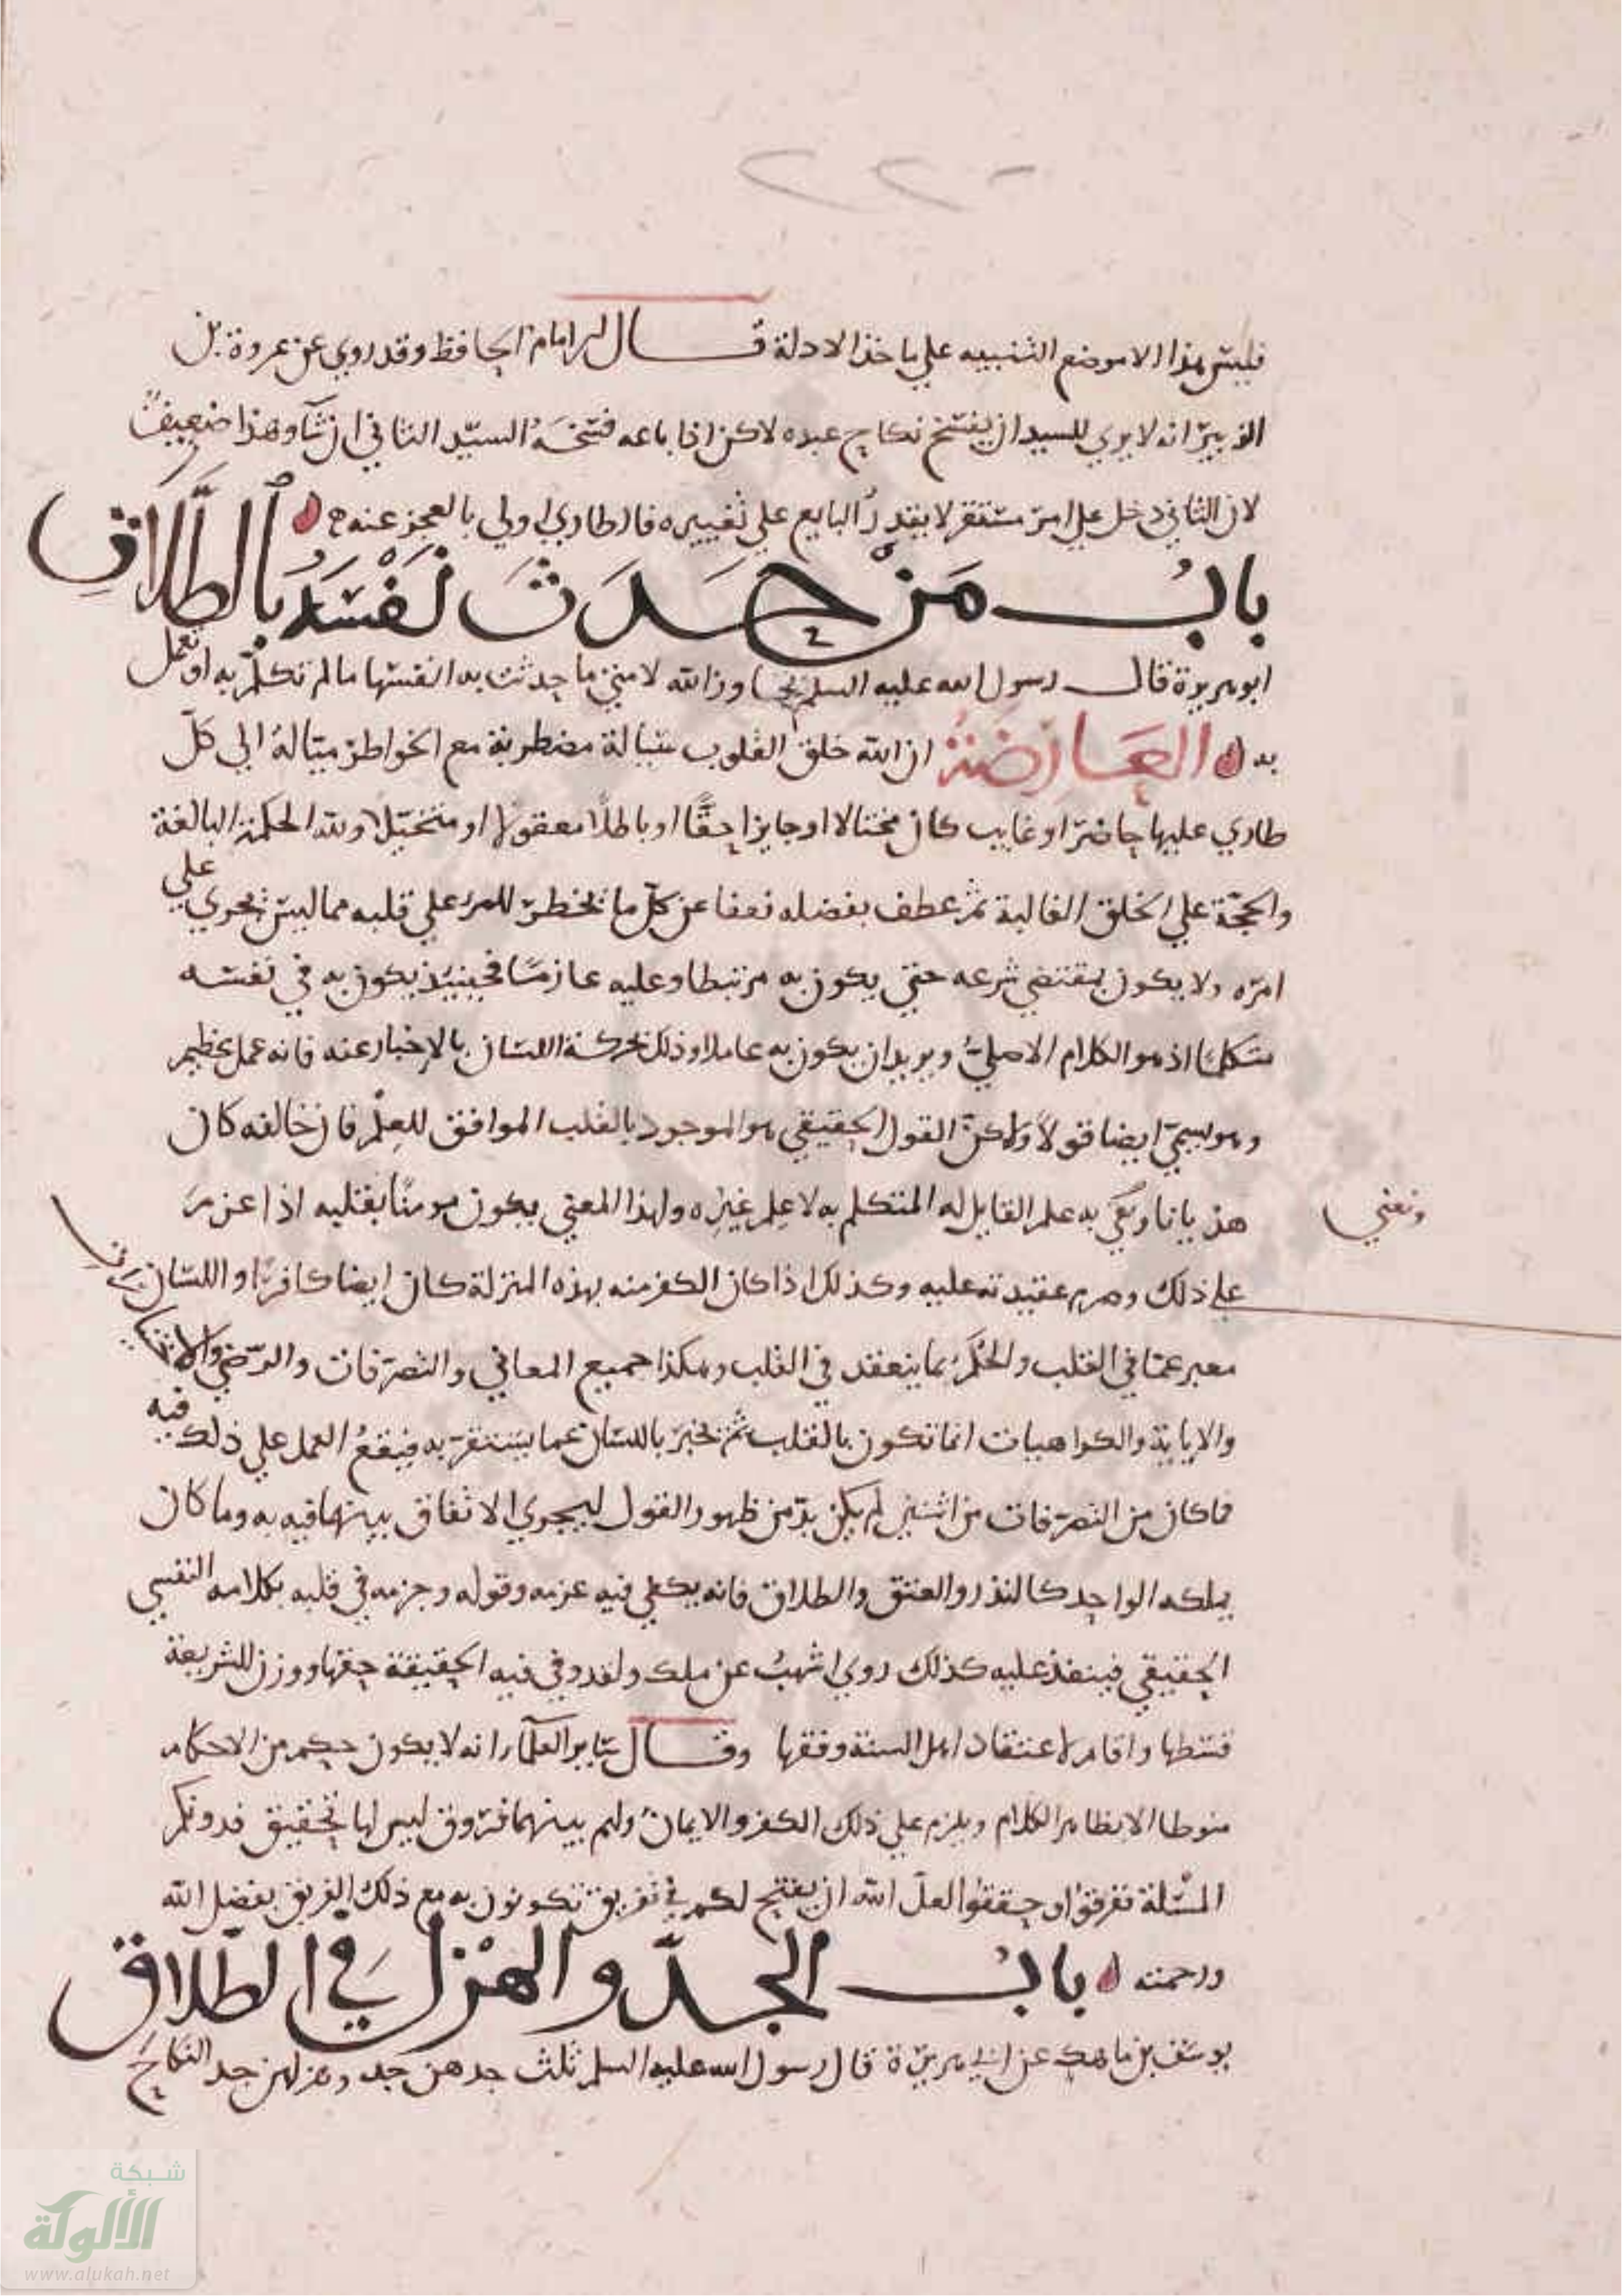 فليس هذا الا موضع التنبيه علي ماخذ الادلة قال الامام الحافظ وقد روي عن عروة بن
الزبير انه لا يري للسيد ان يفسخ نكاح عبده لاكن اذا باعه فسخه السيد الثاني ان شآ وهذا ضعيف
لان الثاني دخل علي امر مستقر لا يقدر البايع علي تغييره فالطاري اولي بالعجز عنه
باب من حدث نفسه بالطلاق
ابو هريرة قال رسول الله عليه السلم تجاوز الله لامتي ما حدثت به انفسها ما لم تكلم به او تعمل
به العارضة ان الله خلق القلوب سيالة مضطربة مع الخواطر ميالة الي كل
طاري عليها حاضر او غايب كان محتالا او جايزا حقا او باطلا معقولا او متخيلا ولله الحكمة البالغة
والحجة علي الخلق الغالبة ثم عطف بفضله فعفا عن كل ما يخطر للمرء علي قلبه مما ليس يجري علي
امره ولا يكون بمقتضي شرعه حتي يكون به مرتبطا وعليه عازما فحينيذ يكون به في نفسه
متكلما اذ هو الكلام الاصلي ويريد ان يكون به عاملا وذلك بحركة اللسان بالاخبار عنه فانه عمل عظيم
وهو يسمي ايضا قولا ولاكن القول الحقيقي هو الموجود بالقلب الموافق للعلم فان خالفه كان
هذيانا ونعني به علم القايل له المتكلم به لا علم غيره ولهذا المعني يكون مومنا بقلبه اذا عزم
ونعني
علي ذلك وصرم عقيدته عليه وكذلك اذا كان الكفر منه بهذه المنزلة كان ايضا كافرا واللسان
معبر عما في القلب والحكم بما ينعقد في القلب وهكذا جميع المعاني والتصرفات والرضي
والاياية والكواهيات انما تكون بالقلب ثم يخبر باللسان عما يستقر به فيقع العمل علي ذلك فيه
فما كان من التصرفات من اثنين لم يكن بد من ظهور القول ليجري الاتفاق بينهما فيه به وما كان
يملكه الواحد كالنذر والعتق والطلاق فانه يكفي فيه عزمه وقوله وجزمه في قلبه بكلامه النفسي
الحقيقي فينفذ عليه كذلك روي اشهب عن ملك ولقد وفي فيه الحقيقة حقها ووزن للشريعة
قسطها واقام لاعتقاد اهل السنة وفقها وقال ساير العلمآء انه لا يكون حكم من الاحكام
منوطا الا بظاهر الكلام ويلزم علي ذلك الكفر والايمان ولهم بينهما فروق ليس لها تحقيق فدونكم
المسئلة تفرقوا او حققوا لعل الله ان يفتح لكم في تفريق تكونون به مع ذلك الفريق بفضل الله
ورحمته باب الجد والهزل في الطلاق
يوسف بن ماهك عن ابي هريرة قال رسول الله عليه السلم ثلث جدهن جد وهزلهن جد النكاح
شبكة
الألوكة
www.alukah.net